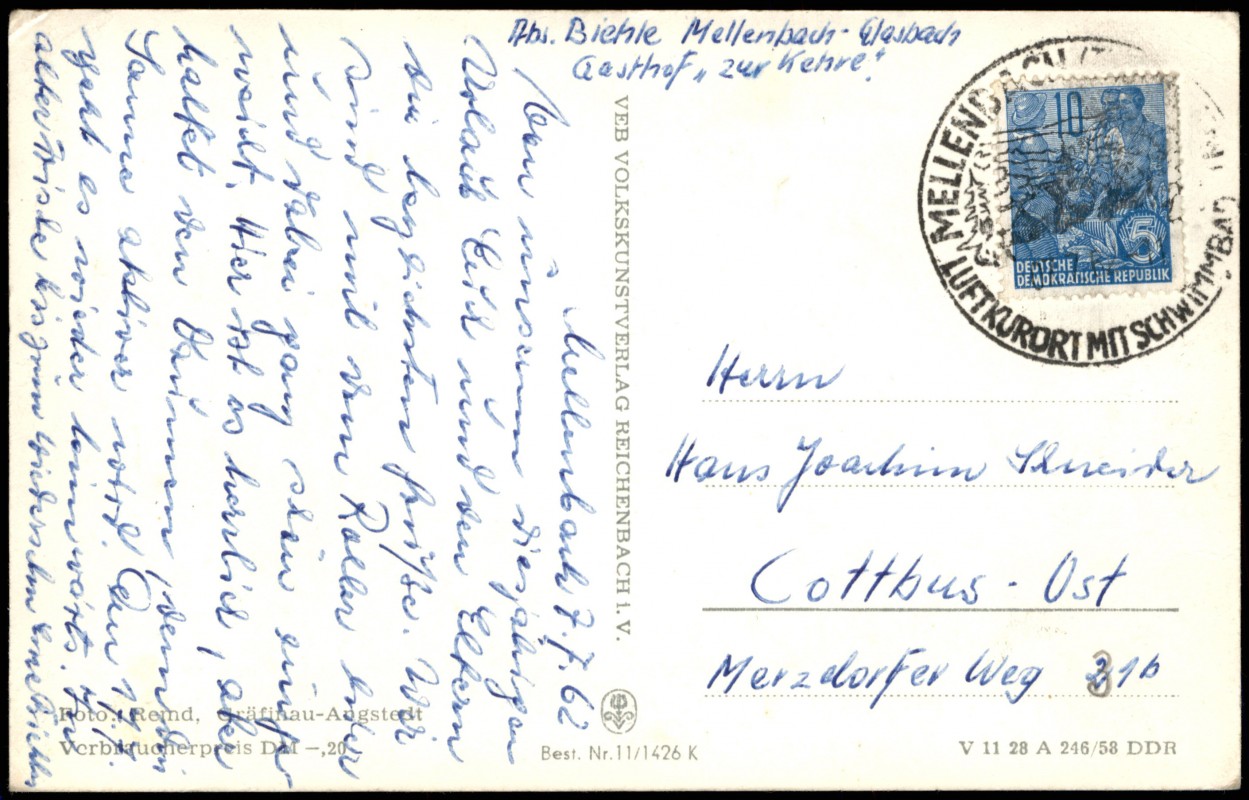 Abs. Biehle Mellenbach-Glasbach
Gasthof „zur Kehre".
Mellenbach 7.7.62
Von unserem diesjährigen
Urlaub Euch und den Eltern
die herzlichsten Grüße. Wir
sind mit dem Roller hier
und dabei ganz schön eingeweicht.
Hier ist es herrlich, aber
haltet den Daumen, wenn die
Sonne aktiver wird. Am 17.7.
geht es wieder heimwärts.
alter Frische bis zum Wiedersehen
VEB VOLKSKUNSTVERLAG REICHENBACH i. V.
Foto: Remd, Gräfinau-Angstedt
Verbraucherpreis DM –,20
Best. Nr. 11/1426 K
V 11 28 A 246/58 DDR
MELLENBACH
LUFTKURORT MIT SCHWIMMBAD
10
5
DEUTSCHE
DEMOKRATISCHE REPUBLIK
Herrn
Hans Joachim Schneider
Cottbus-Ost
Merzdorfer Weg 31b